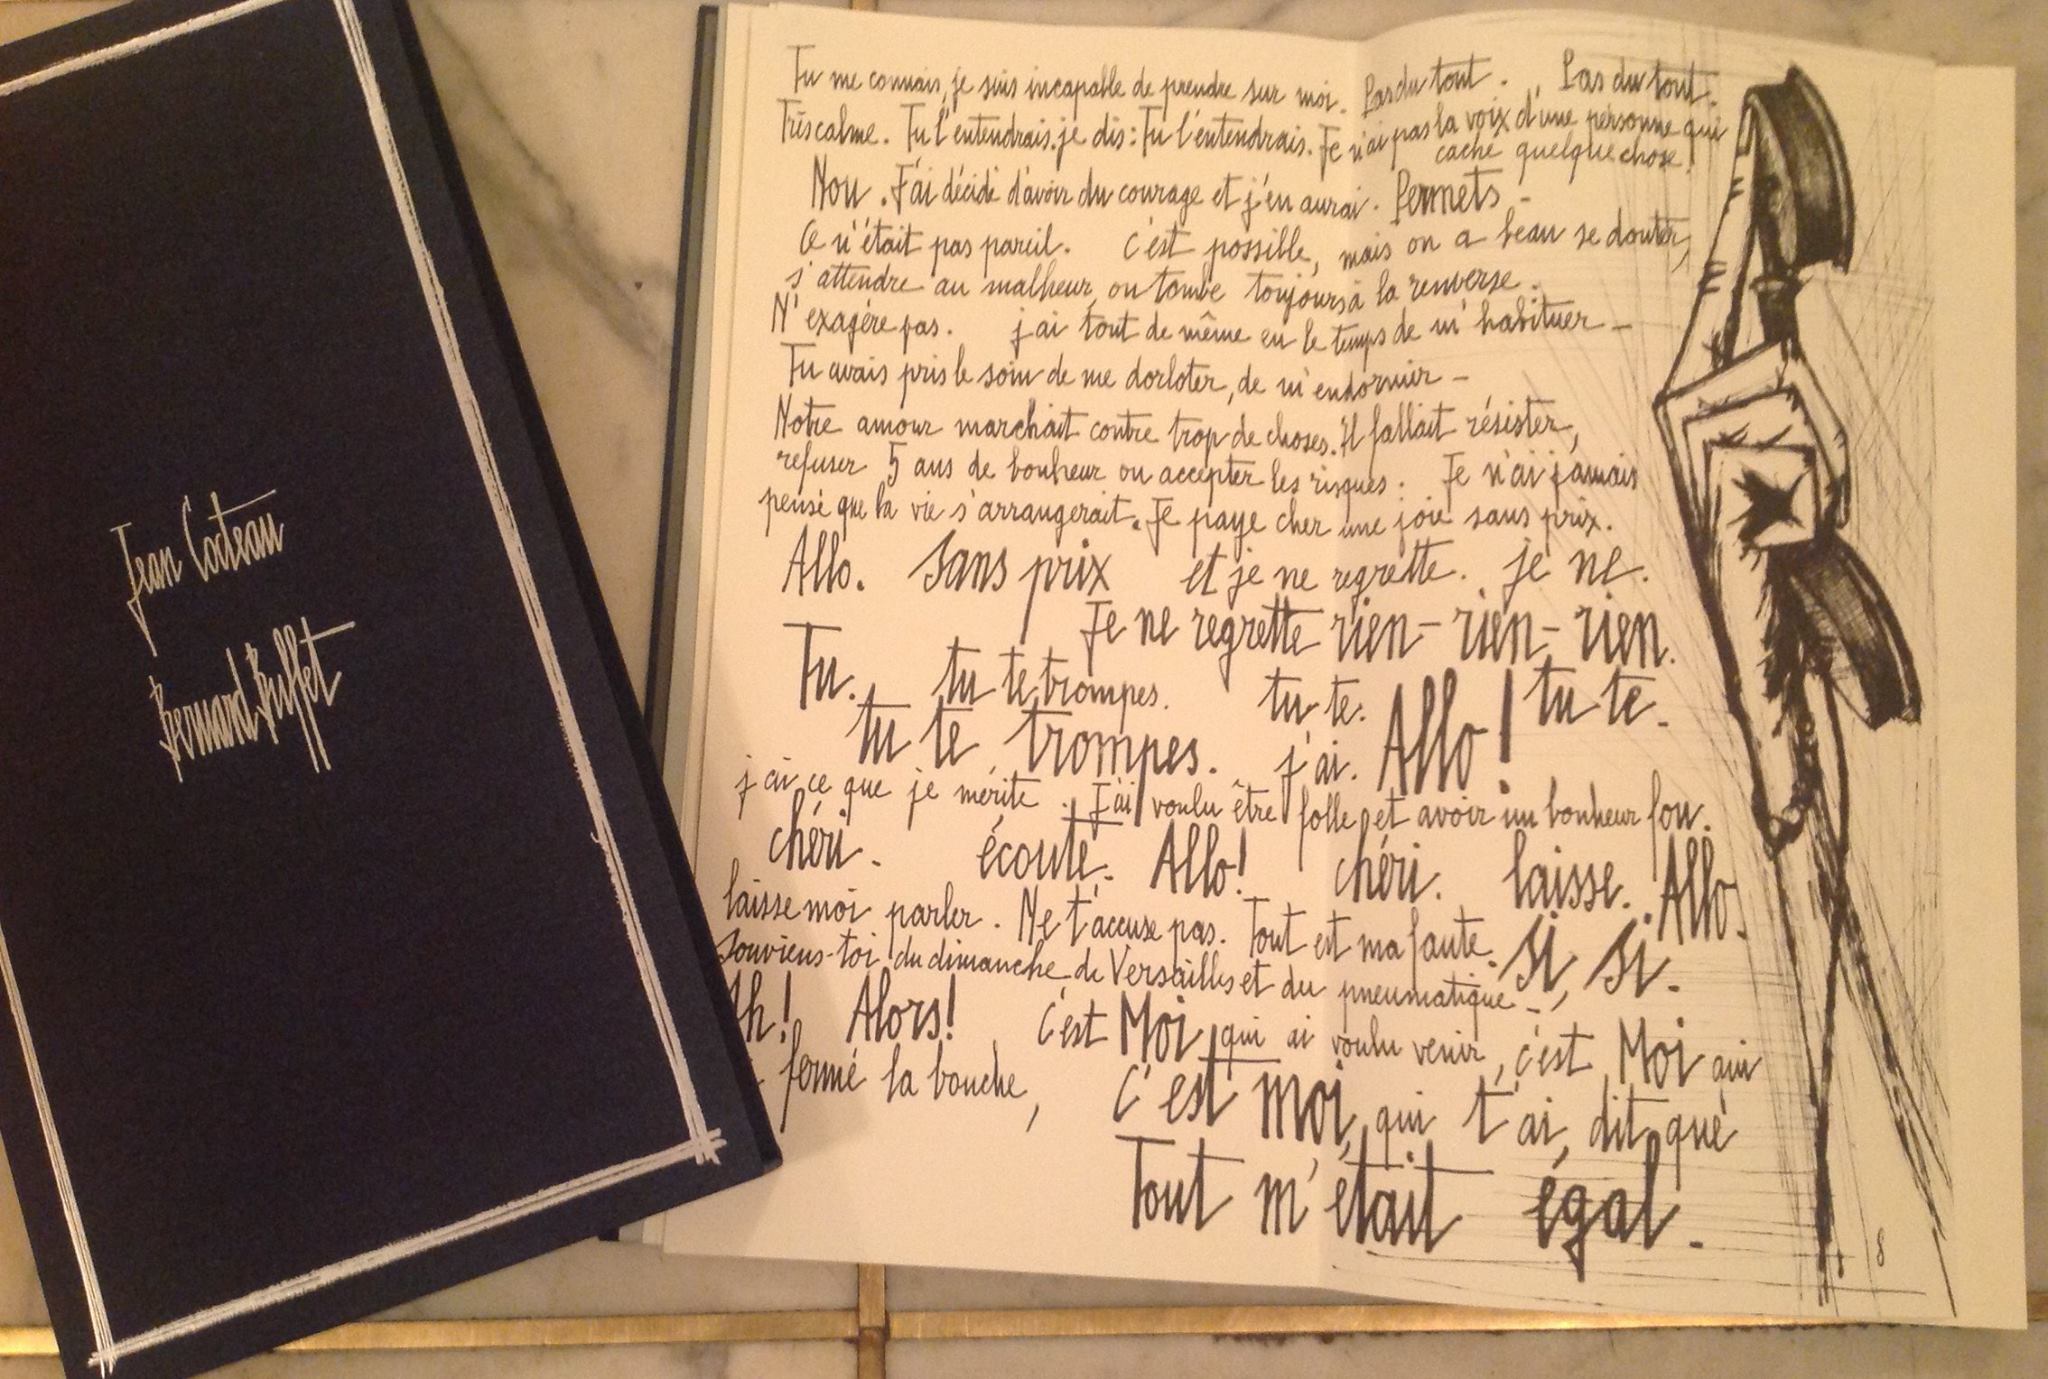 Jean Cocteau
Bernard Buffet
Tu me connais, je suis incapable de prendre sur moi. Pas du tout. Pas du tout.
Très calme. Tu l'entendrais. je dis: Tu l'entendrais. Je n'ai pas la voix d'une personne qui
cache quelque chose.
Non. J'ai décidé d'avoir du courage et j'en aurai. Permets -
Ce n'était pas pareil. C'est possible, mais on a beau se douter,
s'attendre au malheur, on tombe toujours à la renverse.
N'exagère pas. j'ai tout de même eu le temps de m'habituer -
Tu avais pris le soin de me dorloter, de m'endormir -
Notre amour marchait contre trop de choses. Il fallait résister,
refuser 5 ans de bonheur ou accepter les risques. Je n'ai jamais
pensé que la vie s'arrangerait. Je paye cher une joie sans prix.
Allo. Sans prix et je ne regrette. je ne.
Je ne regrette rien - rien - rien.
Tu. tu te trompes. tu te. Allo! tu te.
tu te trompes. j'ai.
j'ai ce que je mérite. J'ai voulu être folle et avoir un bonheur fou.
chéri. écoute. Allo! chéri. laisse. Allo.
laisse moi parler. Ne t'accuse pas. Tout est ma faute. Si, Si.
Souviens-toi du dimanche de Versailles et du pneumatique -
Ah! Alors! C'est Moi qui ai voulu venir, c'est Moi qui
fermé la bouche, C'est moi qui t'ai dit que
Tout m'était égal.
8